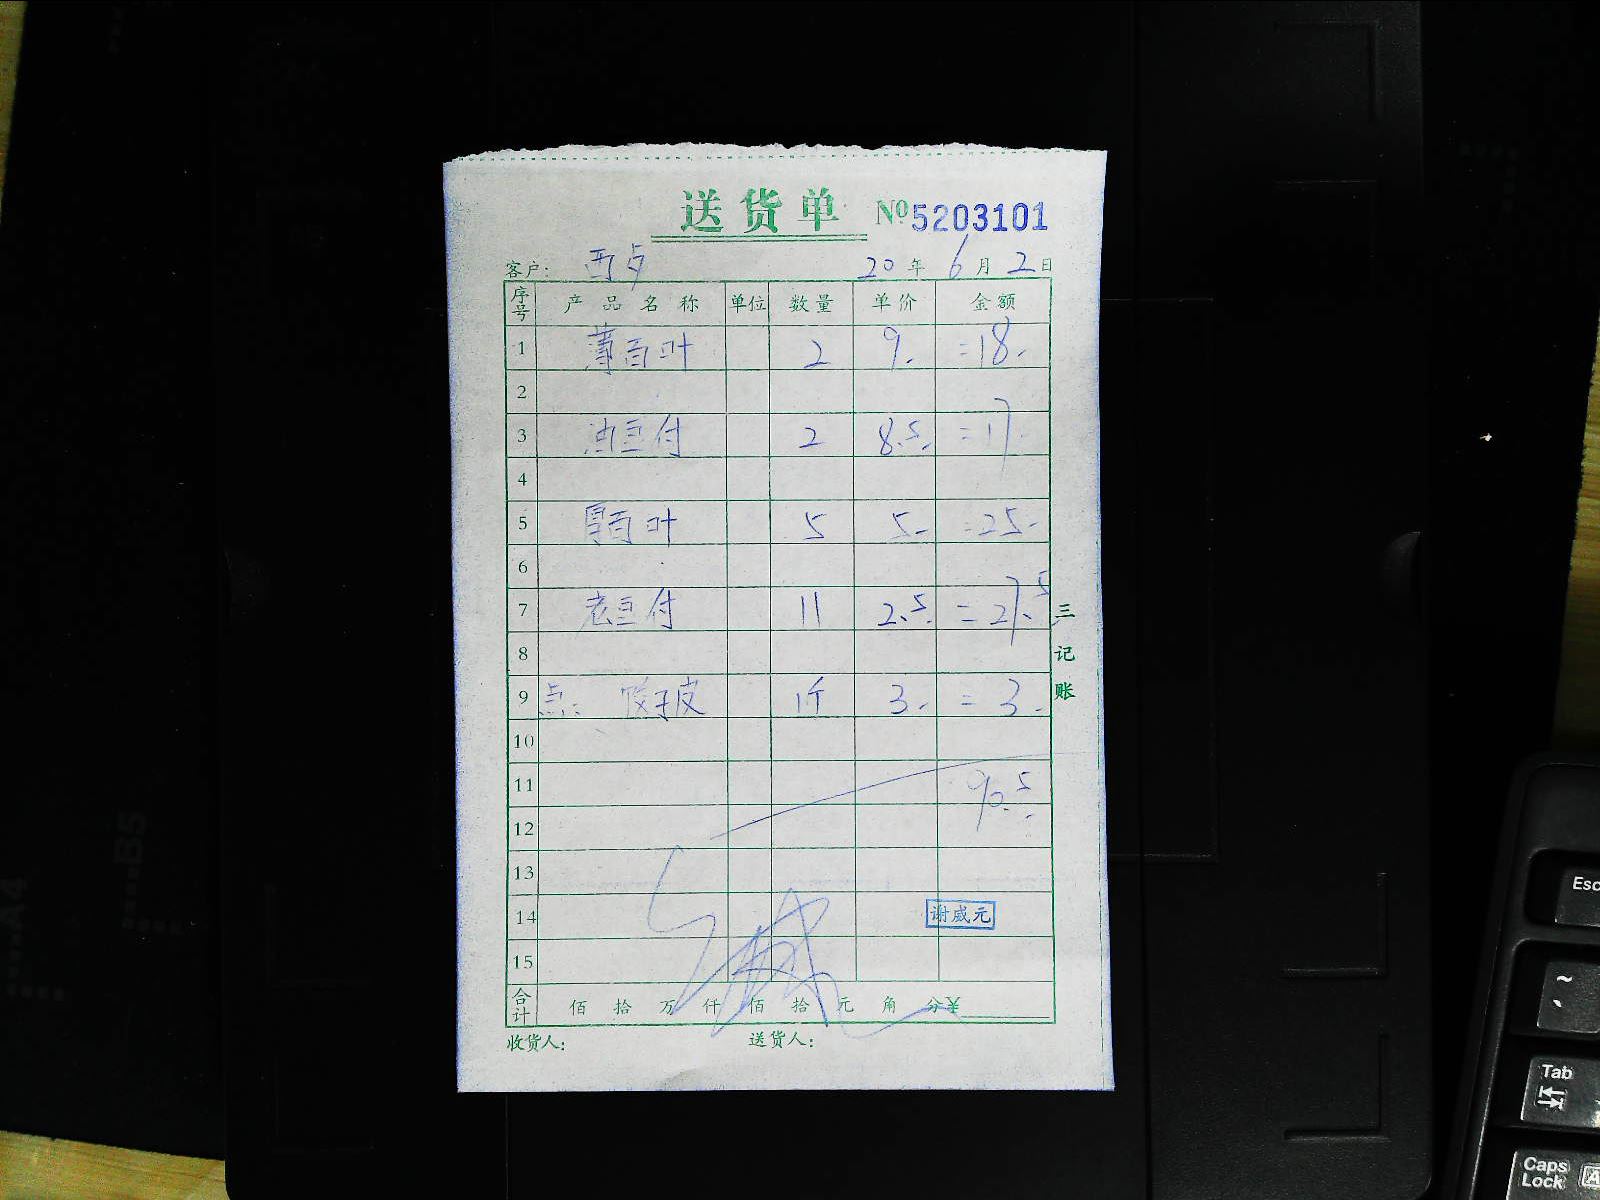 送货单 №5203101
客户: 20年6月2日
序号 产品名称 单位 数量 单价 金额
1 薄百叶 2 9. =18.
2
3 油豆付 2 8.5. =17.
4
5 厚百叶 5 5. =25.
6
7 老豆付 11 2.5. =27.5
8
9 点: 饺子皮 1斤 3. =3.
10
11 90.5
12
13
14 谢威元
15
合计 佰拾万仟佰拾元角分¥
收货人: 送货人:
三记账
A4
B5
Esc
~
Tab
Caps Lock
A